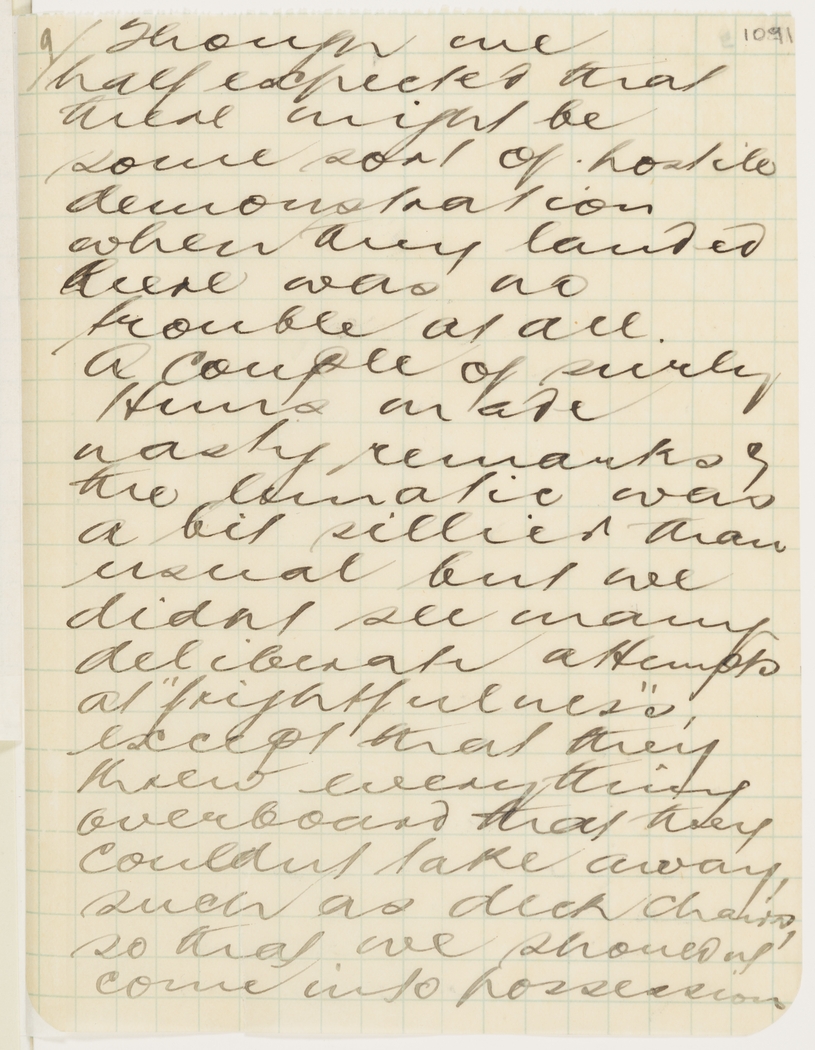 9/ Though we
1091
half expected that
there might be
some sort of hostile
demonstration
when they landed
there was no
trouble at all.
A couple of surly
Huns made
nasty remarks &
the lunatic was
a bit sillier than
usual but we
didnt see many
deliberate attempts
at "frightfulness",
except that they
threw everything
overboard that they
couldnt take away,
such as deck chairs,
so that we shouldnt
come into possession